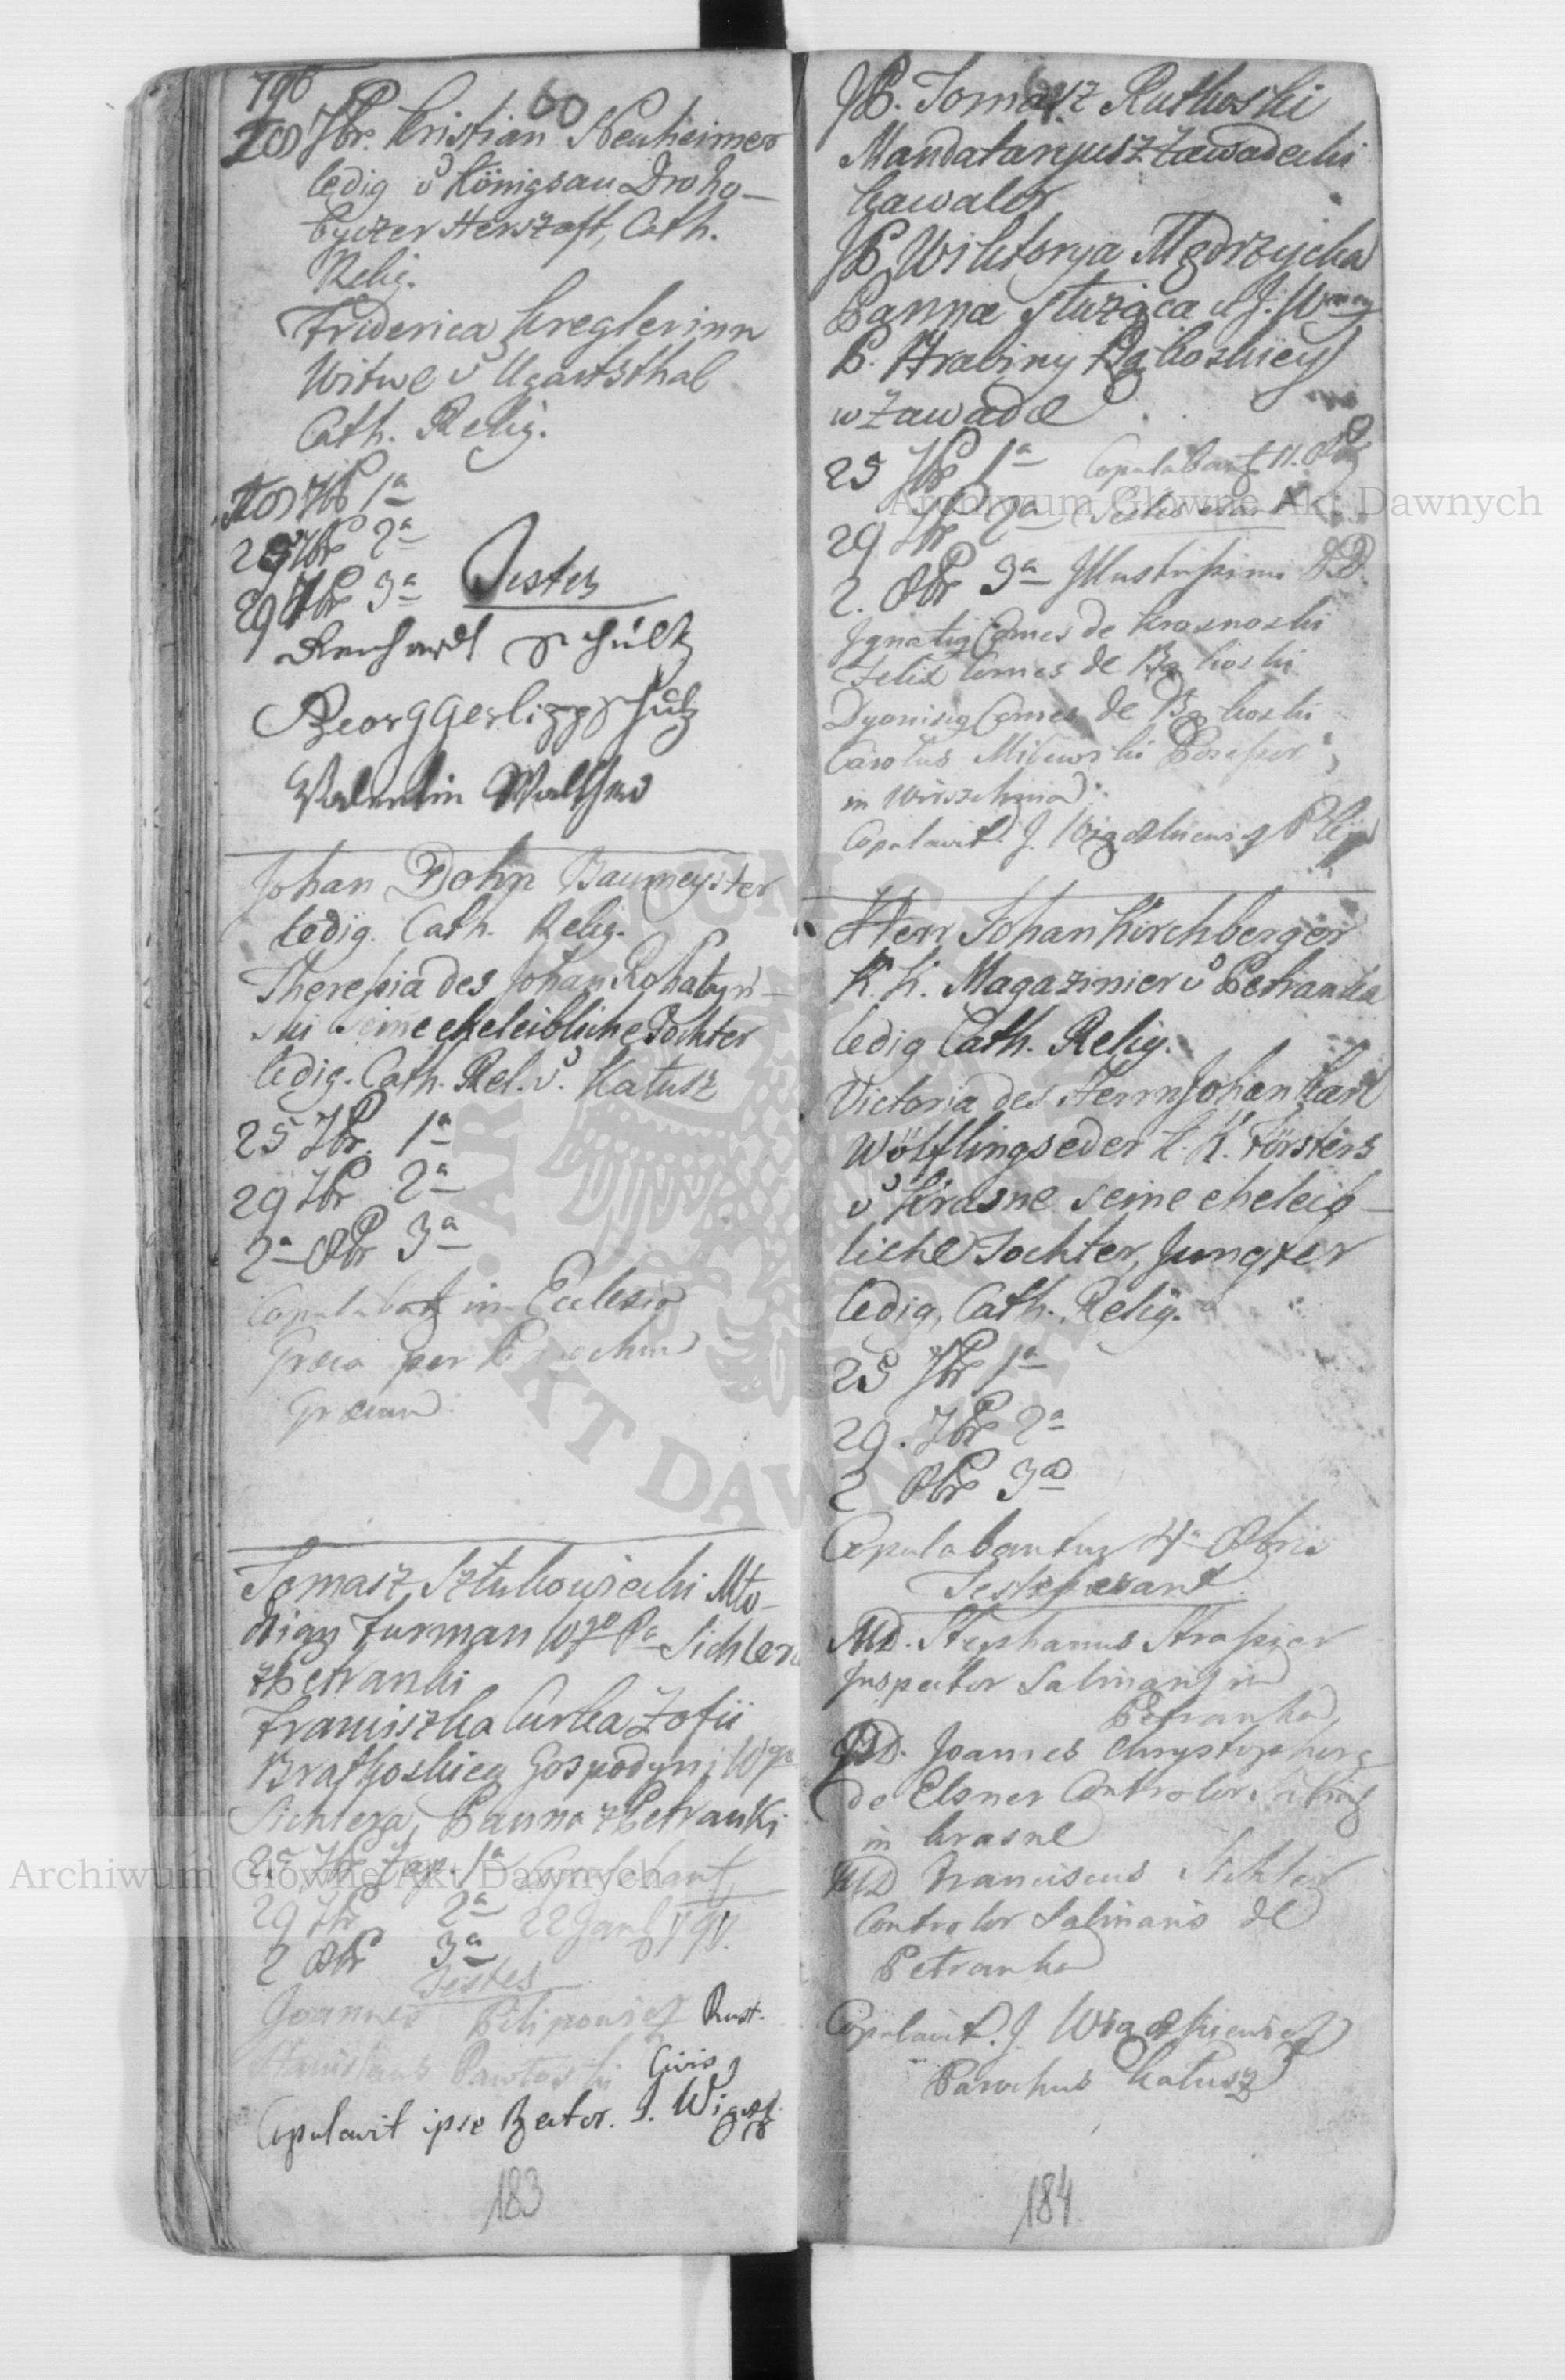 796
60
207br. Kristian Neuheimer
ledig v Königsau Droho–
byczer Herszaft, Cath.
Relig.
Friderica Kreglerinn
Witwe v Ugartsthal
Cath. Relig.
7br 1a
25 7br 2a
29 7br 3a Testes
Schültz
Georg Schütz
Valentin Walther
Johan Dohn Baumeyster
ledig. Cath. Relig.
Theresia des Johan Rohatyn–
ski seine eheleibliche Tochter
ledig. Cath. Rel. v. Kałusz
25 7br. 1a
29 7br 2a
2a 8br 3a
Copulabatz in Ecclesia
Græca per Parochum
Græcum
Tomasz Sztukowiecki Mło–
dzian Furman Wgo Pa Sichlera
z Petranki
Franciszka Curka Zofii
Bratkoskiey Gospodyni Wgo
Sichlera, Panna z Petranki
25 7br Zap. 1a Copulabant
29 7br 2a 22 Janl 797.
2 8br 3a
Testes
Joannes Pilipowicz Rust.
Stanislaus Pawłoski Civis
Copulavit ipse Rector. J. Wigosz.
183
JP. Tomasz Rutkoski
Mandataryusz Zawadecki
Kawaler
JP Wiktorya Mędrzycka
Panna służąca u J. Wmny
P. Hrabiny Bąkoskiey
w Zawadce
25 7br 1a Copulabantz 11. 8br
29 7br 2a Testes erant
2. 8br 3a Illustrissimi DD.
Ignatig Comes de Krosnoski
Felix Comes de Bąkoski
Dyonisig Comes de Bąkoski
Carolus Milewski Possessor
in
Copulavit J.
Herr Johan Kirchberger
K. K. Magazinier v Petranka
ledig Cath. Relig.
Victoria des Herrn Johan Karl
Wölflingseder K. K. Försters
v Krasne seine eheleib–
liche Tochter, Jungfer
ledig, Cath. Relig.
25 7br 1a
29. 7br 2a
2 8br 3a
Copulabantur 4a 8bris
Testes erant
MD. Stephanus Strasser
Inspector Salinaris in
Petranka
MD. Joannes Chrystophorg
de Elsner Controlor Salinq
in Krasne
MD Franciscus Sichler
Controlor Salinaris de
Petranka
Copulavit. J.
Parochus Kałusz
184
Archiwum Główne Akt Dawnych
Archiwum Główne Akt Dawnych